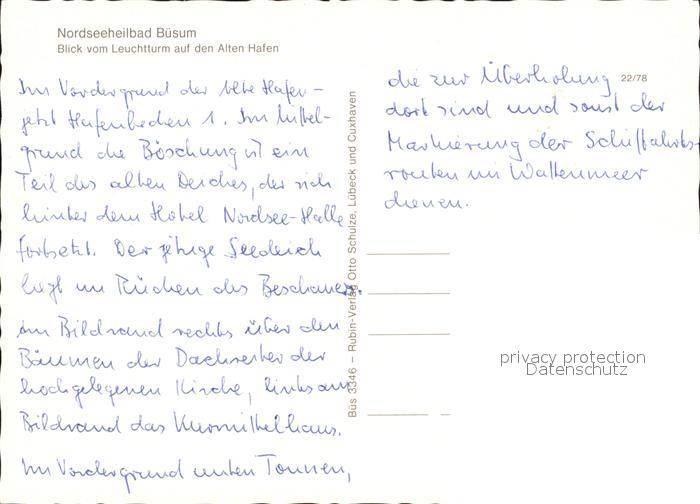 Nordseeheilbad Büsum
Blick vom Leuchtturm auf den Alten Hafen
Im Vordergrund der alte Hafen –
jetzt Hafenbecken 1. Im Mittel-
grund die Böschung ist ein
Teil des alten Deiches, der sich
hinter dem Hotel Nordsee-Halle
fortsetzt. Der jetzige Seedeich
liegt im Rücken des Beschauers.
im Bildrand rechts über den
Bäumen der Dachreiter der
hochgelegenen Kirche, links am
Bildrand das Kurmittelhaus.
Im Vordergrund unten Tonnen,
Büs 3346 – Rubin-Verlag Otto Schulze, Lübeck und Cuxhaven
die zur Überholung 22/78
dort sind und sonst der
Markierung der Schiffahrts-
routen im Wattenmeer
dienen.
privacy protection
Datenschutz